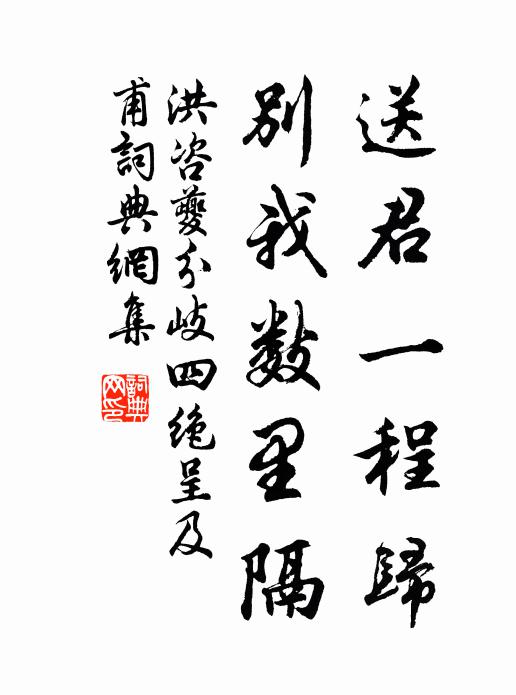 送君一程歸
別我數里隔
洪咨夔分岐四絶呈及
甫詞典網集
詞典網印